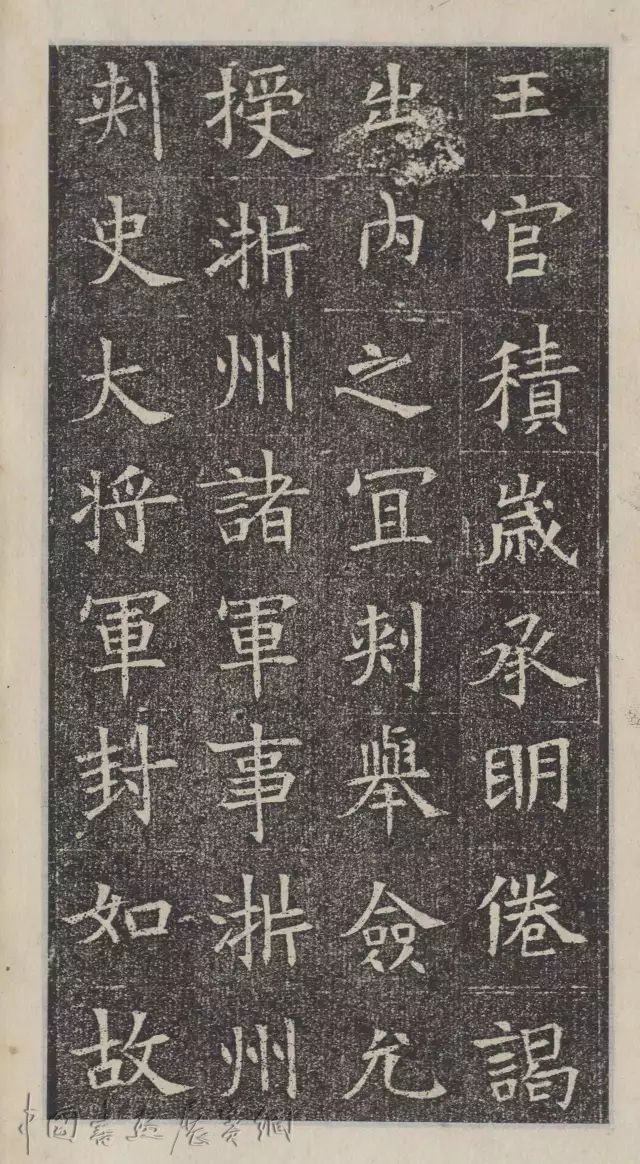 王官積歲承明倦謁
出內之冝刾舉僉允
授淅州諸軍事淅州
刾史大将軍封如故
中国書法展賽網